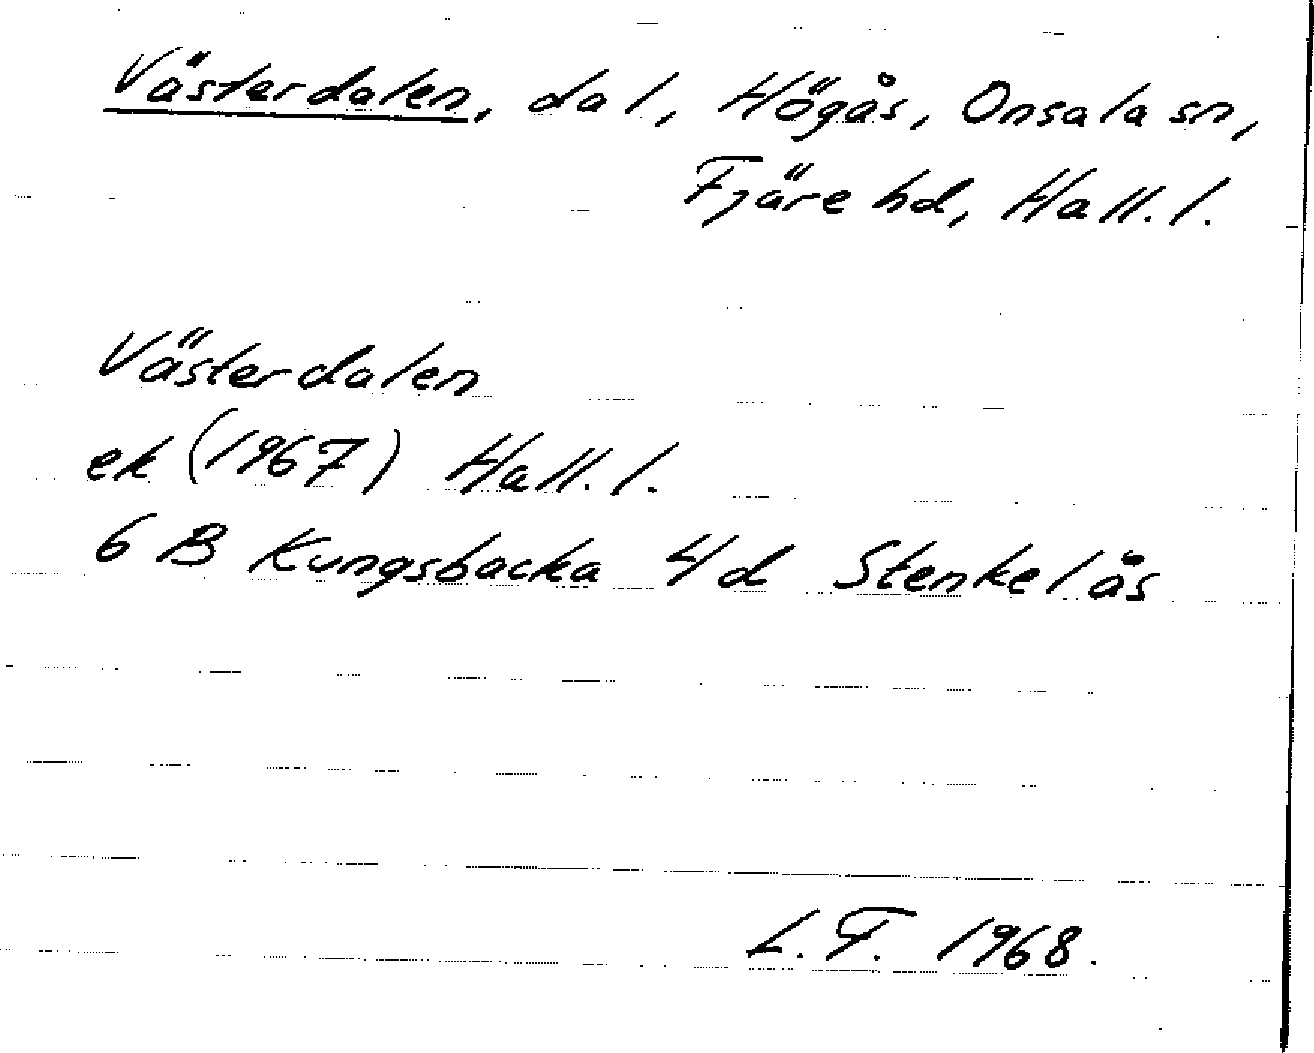 Västerdalen, dal, Högås, Onsala sn,
Fjäre hd, Hall. l.
Västerdalen
ek (1967) Hall. l.
6 B Kungsbacka 4 d Stenkelås
L. F. 1968.